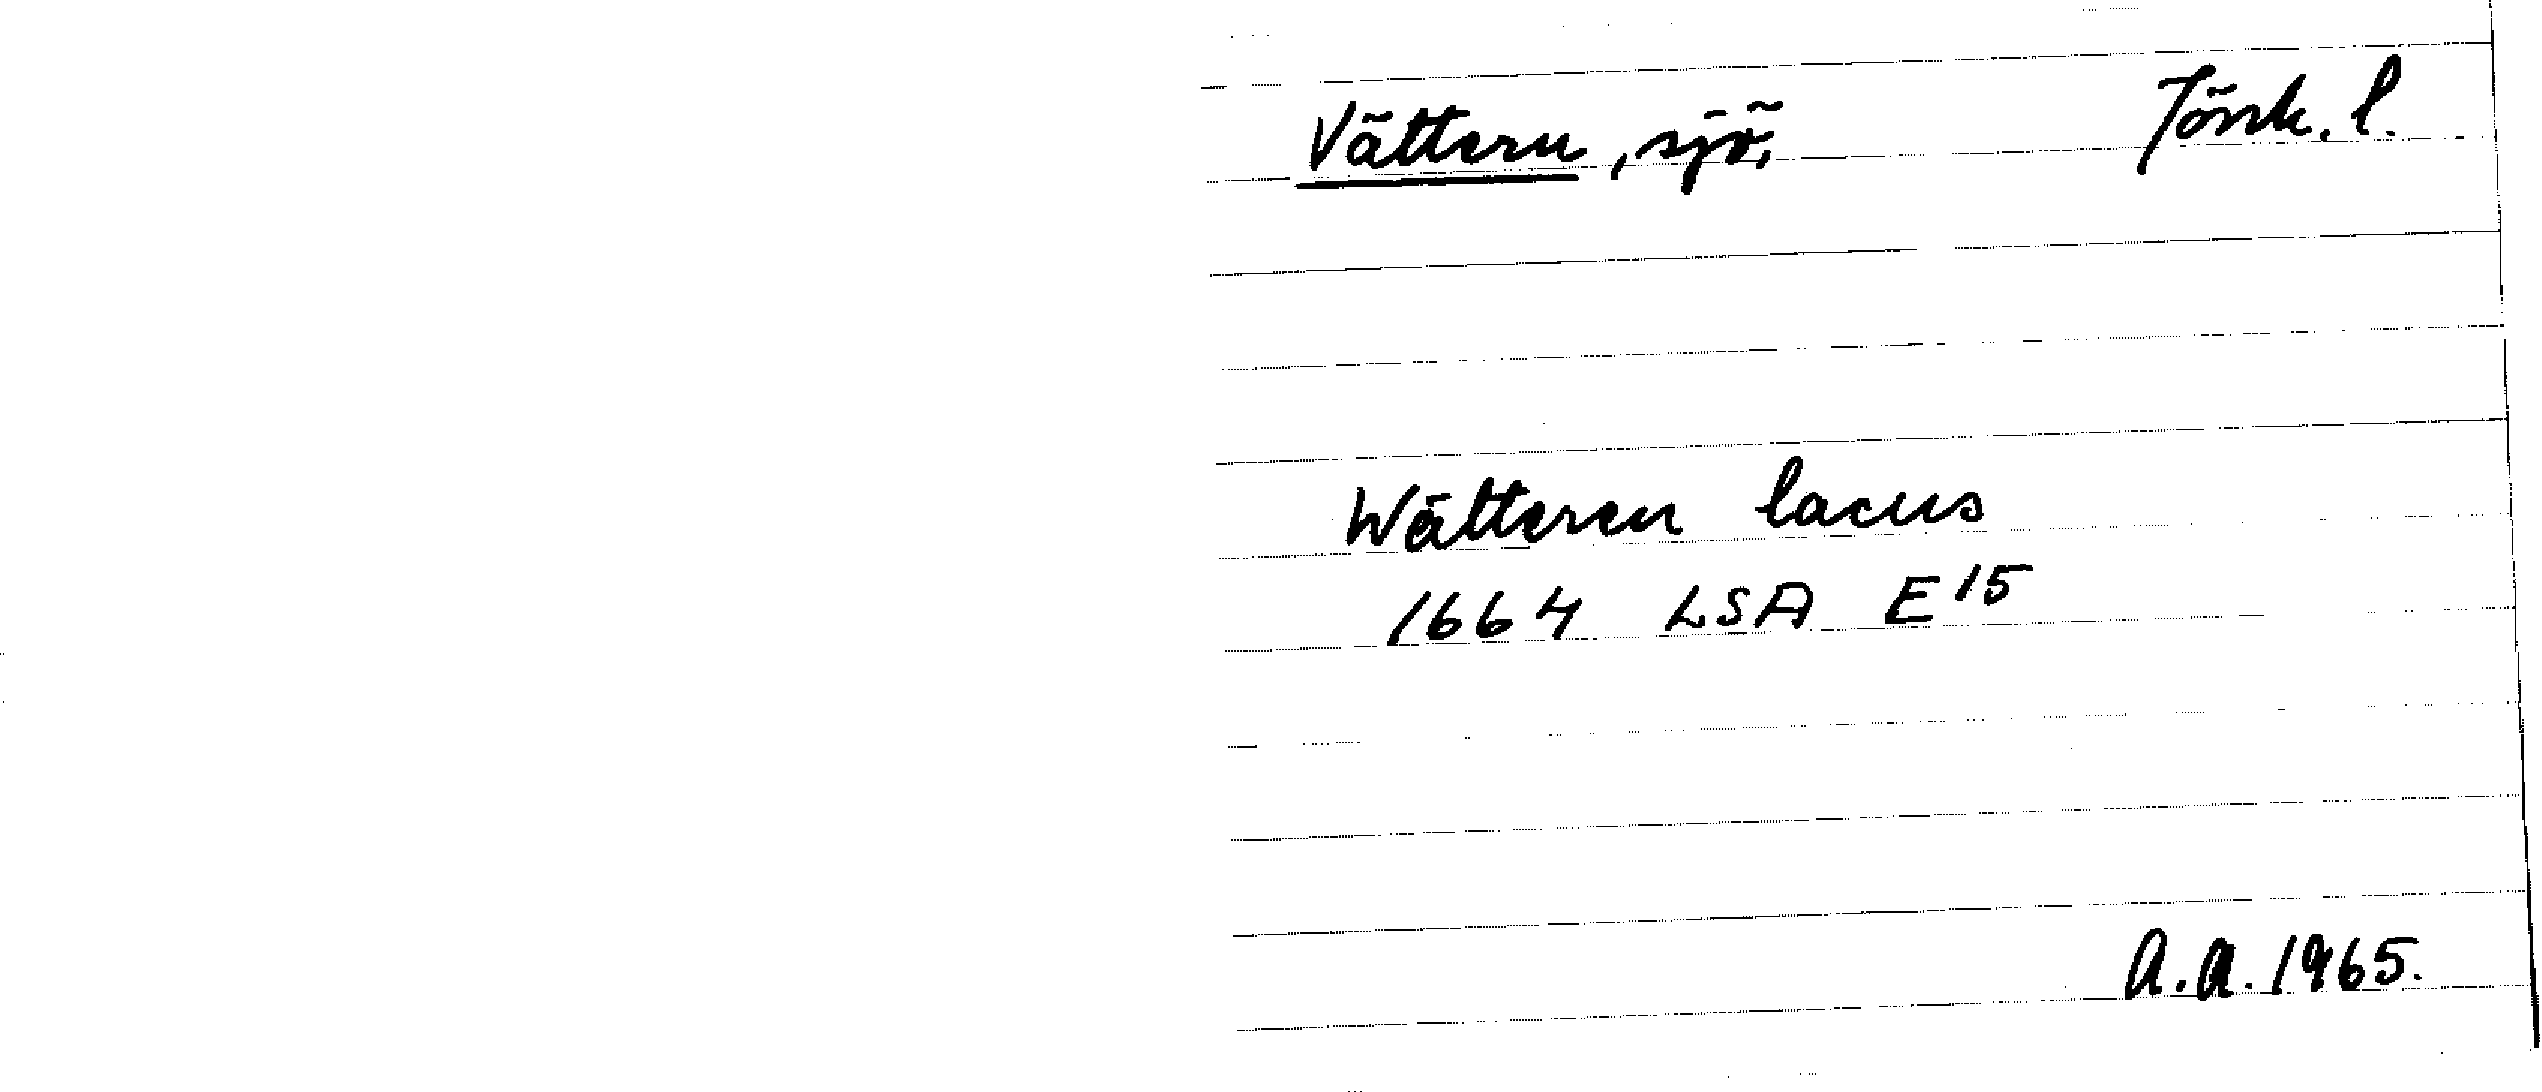 Vättern, sjö, Jönk. l.
Wätteren lacus
1664 LSA E15
A.A. 1965.